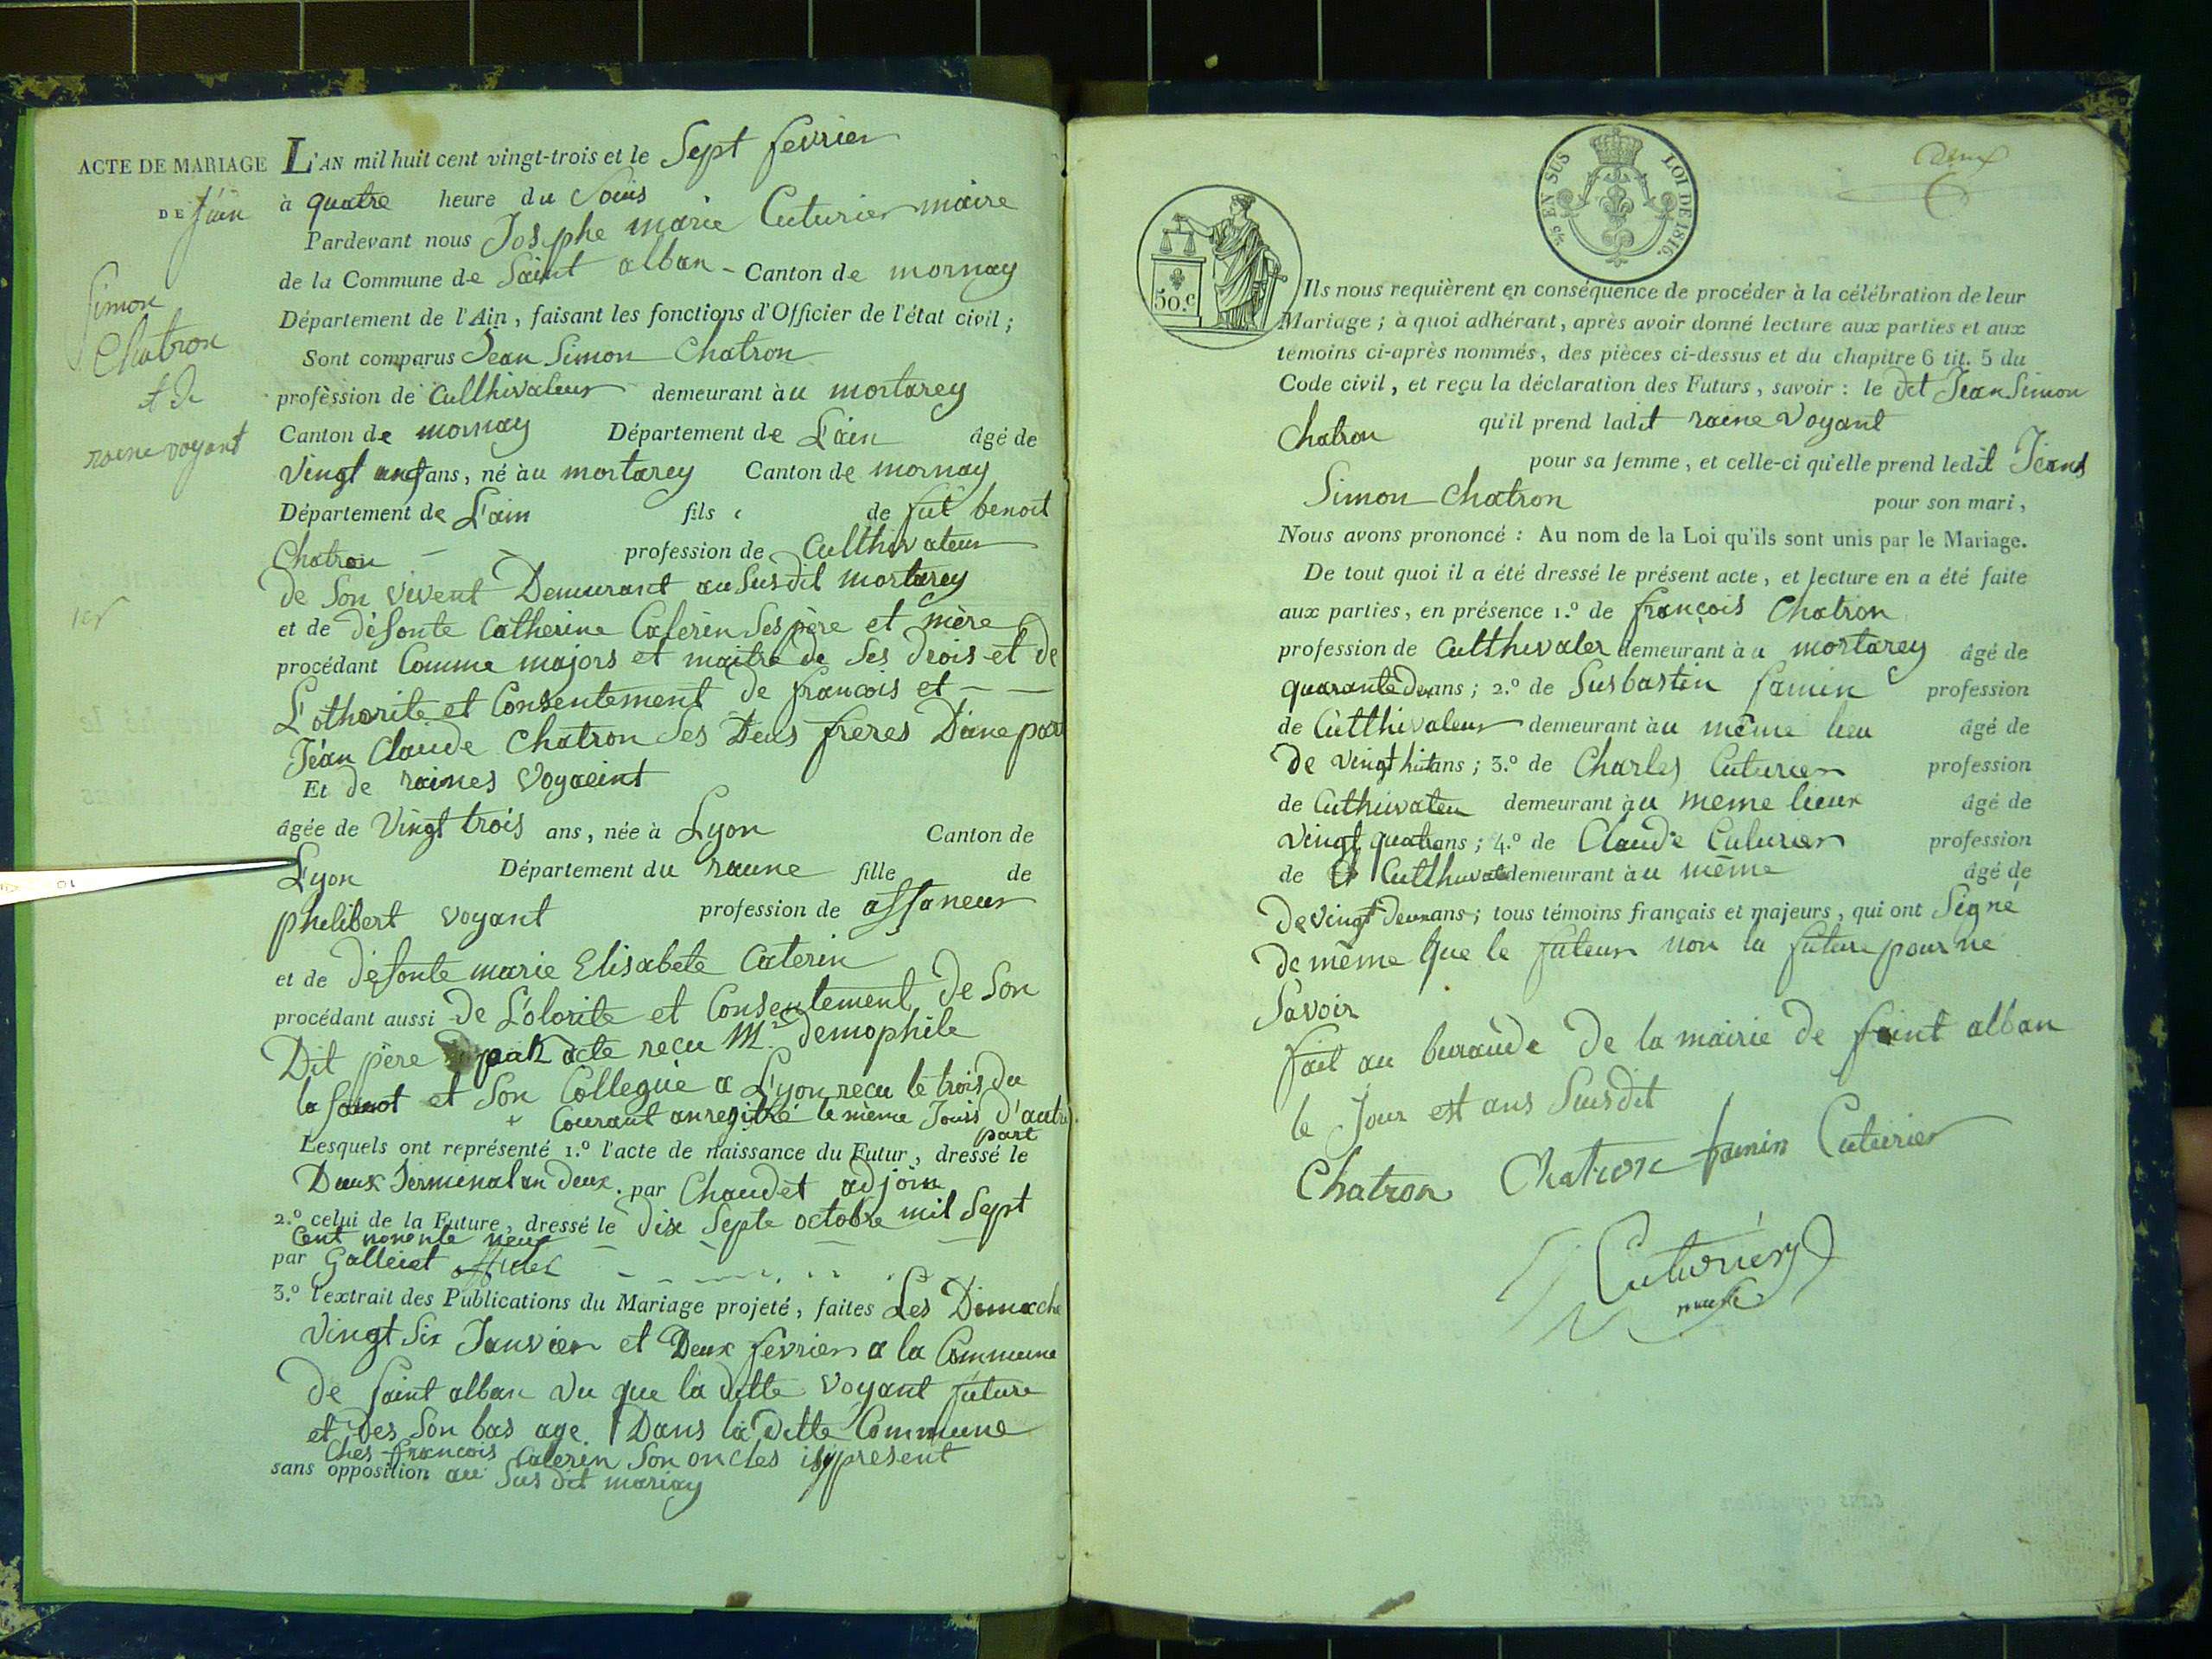 ACTE DE MARIAGE
DE Jéan
Simon
Chatron
et de
raene voyant
1er
L'AN mil huit cent vingt-trois et le Sept fevrier
à quatre heure du Soirs
Pardevant nous Josphe marie Cuturier maire
de la Commune de Saint alban - Canton de mornay
Département de l'Ain, faisant les fonctions d'Officier de l'état civil ;
Sont comparus Jean Simon Chatron
profession de Culthivateur demeurant àu mortarey
Canton de mornay Département de L'ain âgé de
Vingt ans, né àu mortarey Canton de mornay
Département de L'ain fils de fut benoit
Chatron profession de Culthivateur
de Son vivent Demurant au Susdit mortarey
et de défonte Catherine Caterin Ses père et mère
procédant Comme majors et maitre de Ses drois et de
L'othorite et Consentement de francois et
Jéan Claude Chatron Ses Deus freres D'une part
Et de raines Voyaeint
âgée de Vingt trois ans, née à Lyon Canton de
Lyon Département du raune fille de
philibert voyant profession de affaneur
et de défonte marie Elisabete Caterin
procédant aussi de L'otorite et Consentement de Son
Dit père par acte recu Mr demophile
la et Son Collegue a Lyon recu le trois du
+ Courant anregitré le même Jours d'autre
part
Lesquels ont représenté 1.º l'acte de naissance du Futur, dressé le
Deux Jerminal an deux. par Chaudet adjoin
2.º celui de la Future, dressé le dix Septe octobre mil Sept
Cent nonente neuf
par Galleiet
3.º l'extrait des Publications du Mariage projeté, faites Les Dimache
Vingt Six Janvier et Deux fevrier a la Commune
de Saint alban vu que la ditte voyant future
et des Son bas age Dans la ditte Commune
Ches francois Caterin Son oncles isy present
sans opposition au Sus dit mariay
deux
50.c
EN SUS
LOI DE 1816.
Ils nous requièrent en conséquence de procéder à la célébration de leur
Mariage ; à quoi adhérant, après avoir donné lecture aux parties et aux
témoins ci-après nommés, des pièces ci-dessus et du chapitre 6 tit. 5 du
Code civil, et reçu la déclaration des Futurs, savoir : le dit Jean Simon
Chatron qu'il prend ladit raine Voyant
pour sa femme, et celle-ci qu'elle prend ledit Jeans
Simon Chatron pour son mari,
Nous avons prononcé : Au nom de la Loi qu'ils sont unis par le Mariage.
De tout quoi il a été dressé le présent acte, et lecture en a été faite
aux parties, en présence 1.º de françois Chatron
profession de Culthivater demeurant àu mortarey âgé de
quarante deux ans ; 2.º de Susbastin famin profession
de Culthivateur demeurant àu même lieu âgé de
de vingt huit ans ; 3.º de Charles Cuturier profession
de Cuthivateu demeurant àu meme lieux âgé de
vingt quatre ans ; 4.º de Claude Cuturier profession
de Cutthivate demeurant àu même âgé de
de vingt deux ans ; tous témoins français et majeurs, qui ont Signé
de même que le futeur non la future pour ne
Savoir
fait au buraude de la mairie de saint alban
le Jour est ans Susdit
Chatron Chatron famin Cuturier
Cuturier
maire